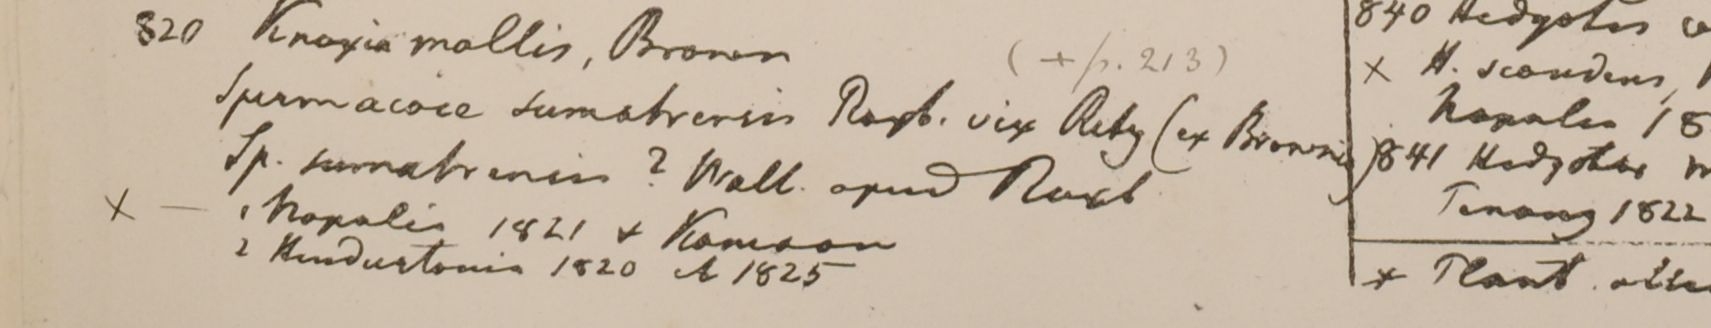 820 Knoxia mollis, Brown
(+/p. 213)
Spermacoce sumatrensis Roxb. vix Retz (ex Brownio)
Sp. sumatrensis ? Wall. apud Roxb
x — 1 Napalia 1821 & Kamaon
2 Hindustania 1820 et 1825
840 Hedyotis
x H. scandens,
Napalia 18
841 Hedyotis m
Penang 1822
x Plant